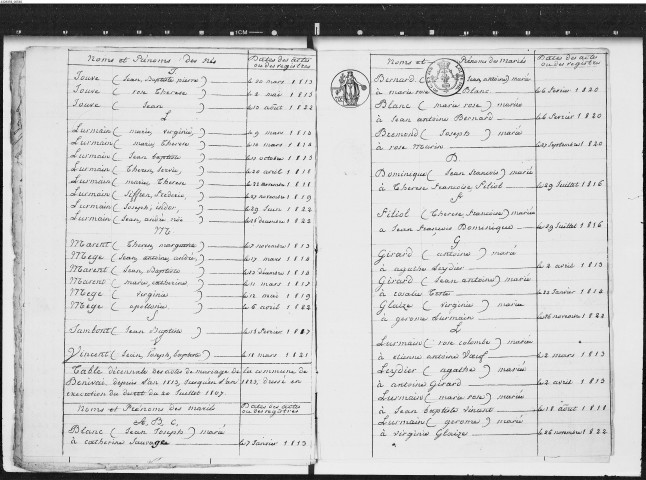 Noms et Prénoms des nés Dates des actes ou des registres
J
Jouve (Jean Baptiste pierre) le 20 mars 1813
Jouve (rose Therese) le 2 mai 1813
Jouve (Jean) le 10 août 1822
L
Lurmain (marie, virginie) le 9 mars 1813
Lurmain (marie, Therese) le 10 mars 1814
Lurmain (Jean baptiste) le 11 octobre 1815
Lurmain (Theresse, sorie) le 20 avril 1818
Lurmain (marie Therese) le 22 novembre 1818
Lurmain (Siffren, frederic) le 27 novembre 1819
Lurmain (Joseph, isidor) le 29 Juin 1822
Lurmain (Jean, andré) le 16 décembre 1822
M
Marent (Therese, marguerite) le 17 novembre 1813
Mège (Jean, antoine, andré) le 17 mars 1814
Marent (Jean, baptiste) le 12 décembre 1814
Marent (marie, catherine) le 11 mars 1817
Mège (virginie) le 12 mai 1819
Mège (apollonie) le 6 avril 1822
S
Jambont (Jean Baptiste) le 18 février 1817
V
Vincent (Jean, Joseph, baptiste) le 18 mars 1821
Table décennale des actes de mariage de la commune de
Benivai, depuis l'an 1813, jusqu'en l'an 1823, dressé en
execution du decret du 20 Juillet 1807.
Noms et Prénoms des mariés Dates des actes ou des registres
A. B. C.
Blanc (Jean Joseph) marié
à catherine Sauvage le 7 Janvier 1813
Noms et Prénoms des mariés Dates des actes ou des registres
Bernard (Jean antoine) marié
à marie rose Blanc le 6 fevrier 1820
Blanc (marie rose) mariée
à Jean antoine Bernard le 6 fevrier 1820
Bremond (Joseph) marié
à rose Marin le 27 Septembre 1820
D
Dominique (Jean francois) marié
à Therese Francoise Filiol le 29 Juillet 1816
F
Filiol (Therese, Françoise) mariée
à Jean François Dominique le 29 Juillet 1816
G
Girard (antoine) marié
à agathe Leydier le 2 avril 1813
Girard (Jean antoine) marié
à Teste le 22 Janvier 1814
Glaize (virginie) mariée
à gerome Lurmain le 26 novembre 1822
L
Lurmain (rose colombe) mariée
à etienne antoine le 2 mars 1813
Leydier (agathe) mariée
à antoine Girard le 2 avril 1813
Lurmain (marie rose) mariée
à Jean baptiste vincent le 18 août 1818
Lurmain (gerome) marié
à virginie Glaize le 26 novembre 1822